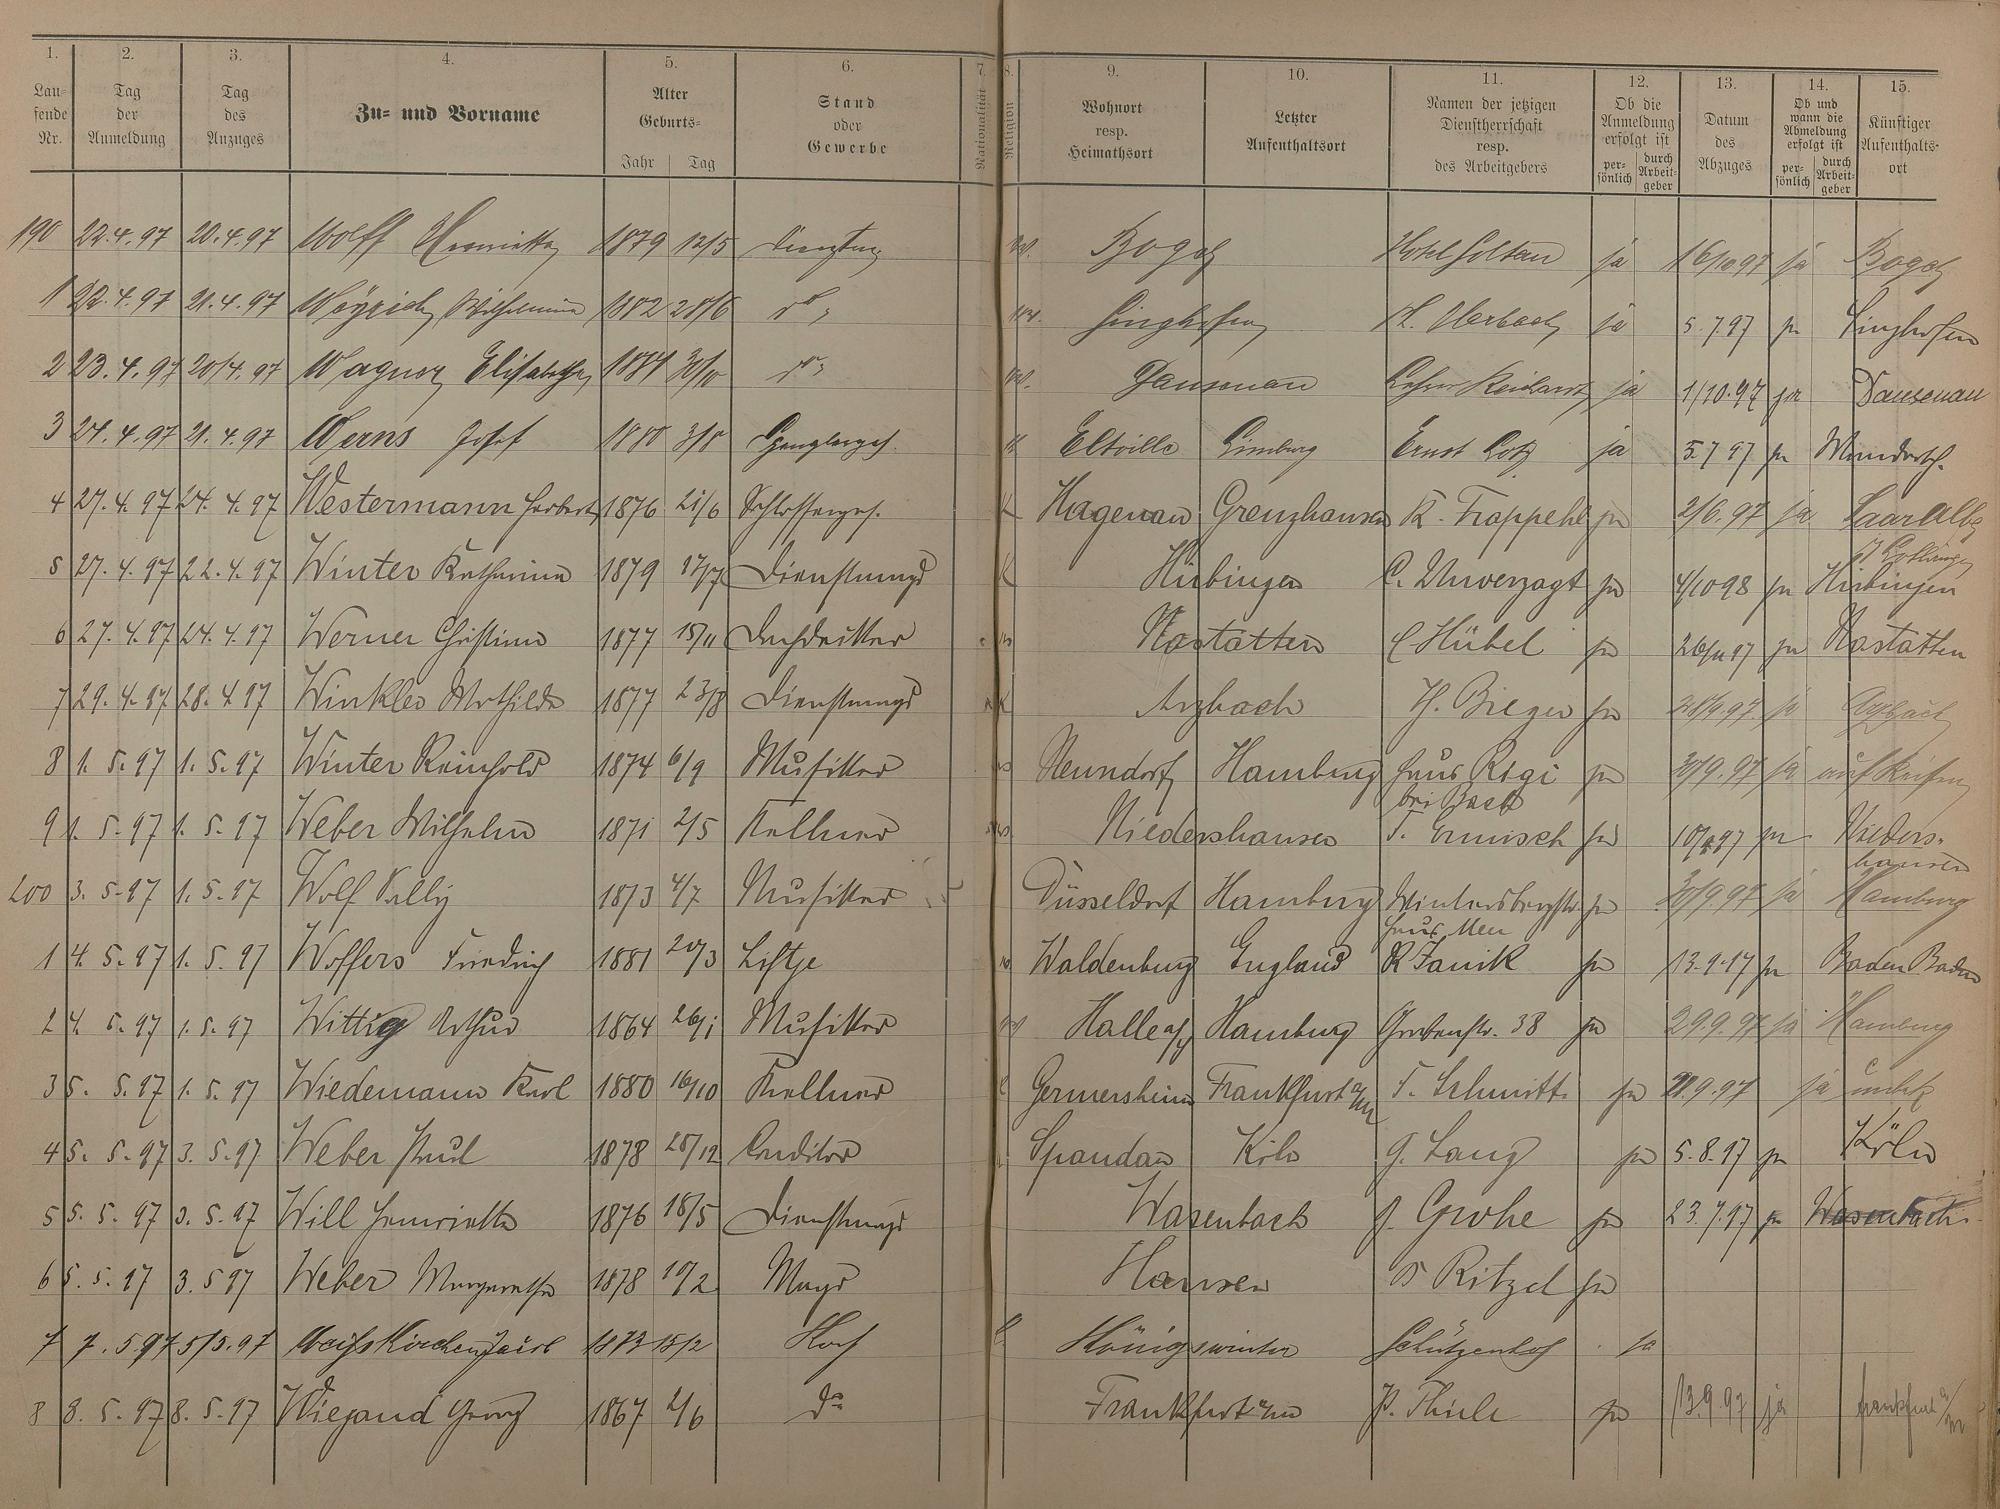 1. 2. 3. 4. 5. 6. 7. 8. 9. 10. 11. 12. 13. 14. 15.
Laufende Nr. Tag der Anmeldung Tag des Anzuges Zu- und Vorname Alter Geburts- Jahr Tag Stand oder Gewerbe Nationalität Religion Wohnort resp. Heimathsort Letzter Aufenthaltsort Namen der jetzigen Dienstherrschaft resp. des Arbeitgebers Ob die Anmeldung erfolgt ist persönlich durch Arbeitgeber Datum des Abzuges Ob und wann die Abmeldung erfolgt ist persönlich durch Arbeitgeber Künftiger Aufenthaltsort
190 22.4.97 20.4.97 Wolff Henriette 1879 12/5 Bogel Hotel ja 16/10 97 ja Bogel
1 22.4.97 21.4.97 Weyrich Wilhelmine 1882 28/6 do Singhofen ja 5.7.97 ja Singhofen
2 23.4.97 20/4.97 Wagner Elisabetha 30/10 do Dausenau Reichardt ja 1/10.97 ja Dausenau
3 24.4.97 21.4.97 Werns Josef 1880 3/8 Spenglergeh. K Eltville Limburg Ernst Lotz ja 5.7 97 ja
4 27.4.97 24.4.97 Westermann Herbert 1876 21/6 Schlosserges. K Hagenau Grenzhausen K. Trappehl ja 2/6.97 ja Saaralbe
5 27.4.97 22.4.97 Winter Katharina 1879 17/7 Dienstmagd K Hirbingen C. Unverzagt ja 4/10 98 ja Hirbingen
6 27.4.97 24.4.97 Werner Christian 1877 15/11 Dachdecker Nastätten C Hübel ja 97 ja Nastätten
7 29.4.97 28.4 97 Winkler Mathilde 1877 23/8 Dienstmagd K Arzbach H. Bieger ja 97 ja Arzbach
8 1.5.97 1.5.97 Winter Reinhold 1874 6/9 Musiker Nenndorf Hamburg Haus Rigi ja 30/9.97 ja auf Reisen
bei Bach
9 1.5.97 1.5.97 Weber Wilhelm 1871 2/5 Kellner Niedershausen T. Ermisch ja 97 ja Niedershausen
200 3.5.97 1.5.97 Wolf Willy 1873 4/7 Musiker Düsseldorf Hamburg Wintersbergstr ja 30/9.97 ja Hamburg
Haus
1 4.5.97 1.5.97 Wolfers Friedrich 1881 20/3 Liftje Waldenburg England R Janik ja 13.9.97 ja Baden Baden
2 4.5.97 1.5.97 Wittig Arthur 1864 26/1 Musiker Halle a/ Hamburg Grabenstr. 38 ja 29.9.97 ja Hamburg
3 5.5.97 1.5.97 Wiedemann Karl 1880 16/10 Kellner Germersheim Frankfurt a/M T. Schmitt ja 9.97 ja unbek
4 5.5.97 3.5.97 Weber Paul 1878 28/12 Conditor Spandau Köln G. Lang ja 5.8.97 ja Köln
5 5.5.97 3.5.97 Will Henriette 1876 18/5 Dienstmagd Wasenbach J. Grohe ja 23.7.97 ja Wasenbach
6 5.5.97 3.5 97 Weber Margaretha 1878 10/2 Magd Hansen Ritzel ja
7 7.5.97 5/5.97 Weißkirchen Jacob 1873 15/2 Koch Königswinter Schützenhof ja
8 8.5.97 8.5.97 Wiegand Georg 1867 2/6 do Frankfurt a/M P. Thiele ja 13.9.97 ja Frankfurt a/M